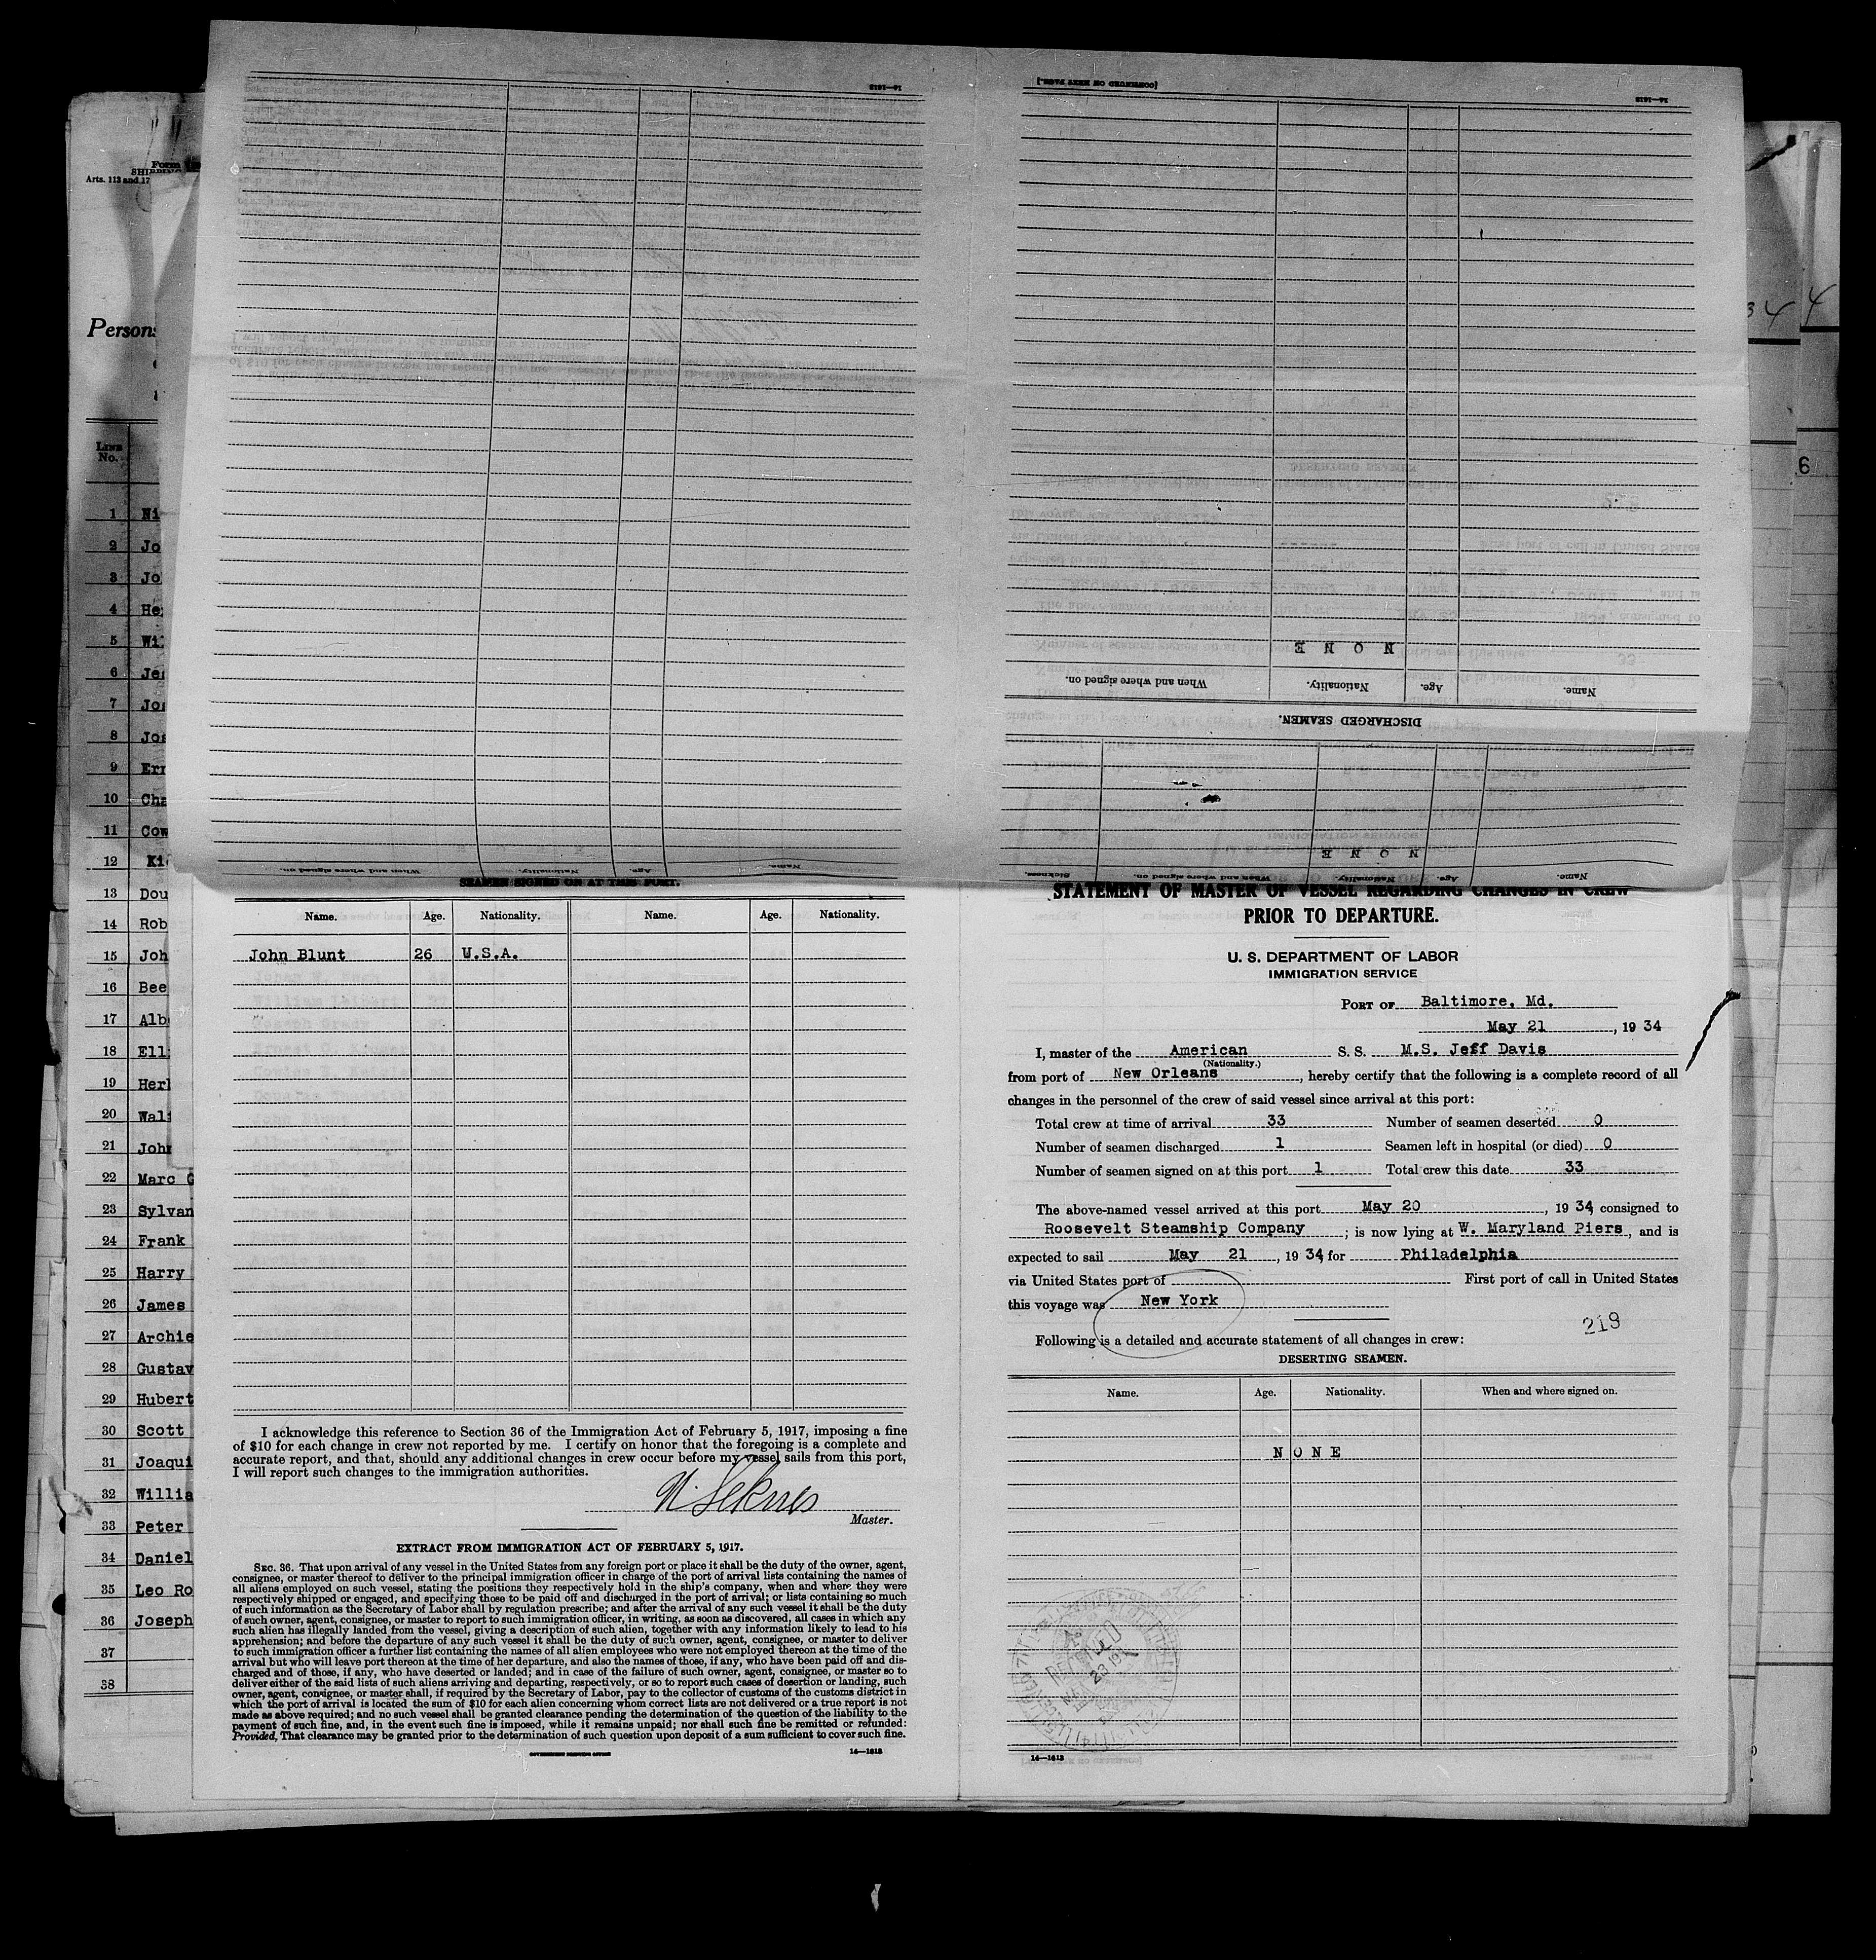 [CONTINUED ON NEXT PAGE.]
14—1613
14—1613
Form
SHIPPING
Arts. 113 and 17
Person
LINE No.
1 Ni
2 Jo
3 Jo
4 He
5 Wi
6 Je
7 Jo
8 Jos
9 Ern
10 Cha
11 Cow
12 Ki
13 Dou
14 Rob
15 Joh
16 Bee
17 Alb
18 Ell
19 Her
20 Wal
21 John
22 Marc G
23 Sylvan
24 Frank
25 Harry
26 James
27 Archie
28 Gustav
29 Hubert
30 Scott
31 Joaqui
32 Willia
33 Peter
34 Daniel
35 Leo Ro
36 Joseph
37
38
34
4
6
NONE
Name. Age. Nationality. When and where signed on.
DISCHARGED SEAMEN.
NONE
Name. Age. Nationality. When and where signed on. Sickness.
Name. Age. Nationality. When and where signed on.
SEAMEN SIGNED ON AT THIS PORT.
Name. Age. Nationality. Name. Age. Nationality.
John Blunt 26 U.S.A.
I acknowledge this reference to Section 36 of the Immigration Act of February 5, 1917, imposing a fine
of $10 for each change in crew not reported by me. I certify on honor that the foregoing is a complete and
accurate report, and that, should any additional changes in crew occur before my vessel sails from this port,
I will report such changes to the immigration authorities.
Master.
EXTRACT FROM IMMIGRATION ACT OF FEBRUARY 5, 1917.
SEC. 36. That upon arrival of any vessel in the United States from any foreign port or place it shall be the duty of the owner, agent,
consignee, or master thereof to deliver to the principal immigration officer in charge of the port of arrival lists containing the names of
all aliens employed on such vessel, stating the positions they respectively hold in the ship's company, when and where they were
respectively shipped or engaged, and specifying those to be paid off and discharged in the port of arrival; or lists containing so much
of such information as the Secretary of Labor shall by regulation prescribe; and after the arrival of any such vessel it shall be the duty
of such owner, agent, consignee, or master to report to such immigration officer, in writing, as soon as discovered, all cases in which any
such alien has illegally landed from the vessel, giving a description of such alien, together with any information likely to lead to his
apprehension; and before the departure of any such vessel it shall be the duty of such owner, agent, consignee, or master to deliver
to such immigration officer a further list containing the names of all alien employees who were not employed thereon at the time of the
arrival but who will leave port thereon at the time of her departure, and also the names of those, if any, who have been paid off and dis-
charged and of those, if any, who have deserted or landed; and in case of the failure of such owner, agent, consignee, or master so to
deliver either of the said lists of such aliens arriving and departing, respectively, or so to report such cases of desertion or landing, such
owner, agent, consignee, or master shall, if required by the Secretary of Labor, pay to the collector of customs of the customs district in
which the port of arrival is located the sum of $10 for each alien concerning whom correct lists are not delivered or a true report is not
made as above required; and no such vessel shall be granted clearance pending the determination of the question of the liability to the
payment of such fine, and, in the event such fine is imposed, while it remains unpaid; nor shall such fine be remitted or refunded:
Provided, That clearance may be granted prior to the determination of such question upon deposit of a sum sufficient to cover such fine.
GOVERNMENT PRINTING OFFICE 14—1613
STATEMENT OF MASTER OF VESSEL REGARDING CHANGES IN CREW
PRIOR TO DEPARTURE.
U. S. DEPARTMENT OF LABOR
IMMIGRATION SERVICE
PORT OF Baltimore, Md.
May 21, 1934
I, master of the American S. S. M.S. Jeff Davis
(Nationality.)
from port of New Orleans, hereby certify that the following is a complete record of all
changes in the personnel of the crew of said vessel since arrival at this port:
Total crew at time of arrival 33 Number of seamen deserted 0
Number of seamen discharged 1 Seamen left in hospital (or died) 0
Number of seamen signed on at this port 1 Total crew this date 33
The above-named vessel arrived at this port May 20, 1934, consigned to
Roosevelt Steamship Company; is now lying at W. Maryland Piers, and is
expected to sail May 21, 1934, for Philadelphia
via United States port of First port of call in United States
this voyage was New York
219
Following is a detailed and accurate statement of all changes in crew:
DESERTING SEAMEN.
Name. Age. Nationality. When and where signed on.
NONE
RECEIVED
14—1613